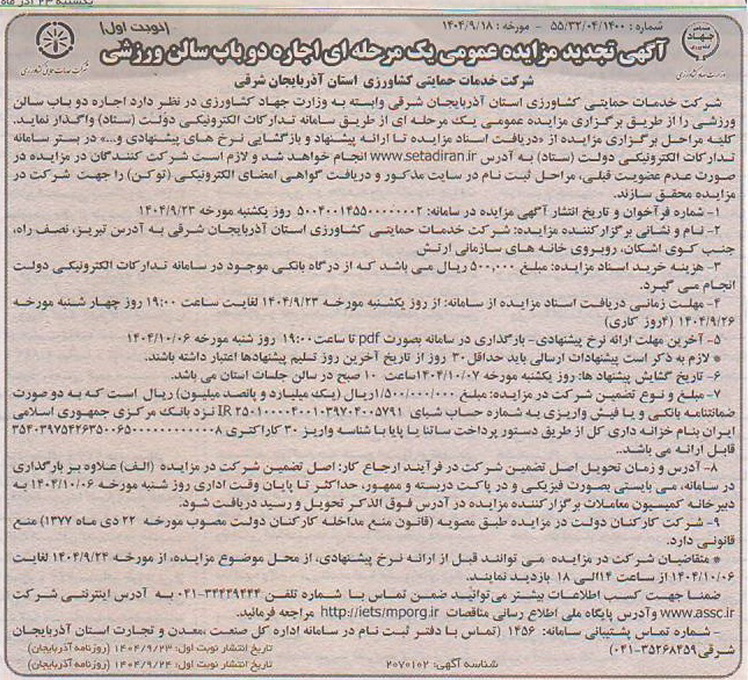 یکشنبه ۲۳ آذر ماه
شماره : ۵۵/۳۲/۰۴/۱۴۰۰ - مورخه : ۱۴۰۴/۹/۱۸
(نوبت اول)
آگهی تجدید مزایده عمومی یک مرحله ای اجاره دو باب سالن ورزشی
شرکت خدمات حمایتی کشاورزی استان آذربایجان شرقی
جهاد
وزارت جهاد کشاورزی
شرکت خدمات حمایتی کشاورزی
شرکت خدمات حمایتی کشاورزی استان آذربایجان شرقی وابسته به وزارت جهاد کشاورزی در نظر دارد اجاره دو باب سالن
ورزشی را از طریق برگزاری مزایده عمومی یک مرحله ای از طریق سامانه تدارکات الکترونیکی دولت (ستاد) واگذار نماید.
کلیه مراحل برگزاری مزایده از «دریافت اسناد مزایده تا ارائه پیشنهاد و بازگشایی نرخ های پیشنهادی و...» در بستر سامانه
تدارکات الکترونیکی دولت (ستاد) به آدرس www.setadiran.ir انجام خواهد شد و لازم است شرکت کنندگان در مزایده در
صورت عدم عضویت قبلی، مراحل ثبت نام در سایت مذکور و دریافت گواهی امضای الکترونیکی (توکن) را جهت شرکت در
مزایده محقق سازند.
۱- شماره فرآخوان و تاریخ انتشار آگهی مزایده در سامانه: ۵۰۰۴۰۰۱۴۵۵۰۰۰۰۰۰۲ روز یکشنبه مورخه ۱۴۰۴/۹/۲۳
۲- نام و نشانی برگزار کننده مزایده: شرکت خدمات حمایتی کشاورزی استان آذربایجان شرقی به آدرس تبریز، نصف راه،
جنب کوی اشکان، روبروی خانه های سازمانی ارتش
۳- هزینه خرید اسناد مزایده: مبلغ ۵۰۰,۰۰۰ ریال می باشد که از درگاه بانکی موجود در سامانه تدارکات الکترونیکی دولت
انجام می گیرد.
۴- مهلت زمانی دریافت اسناد مزایده از سامانه: از روز یکشنبه مورخه ۱۴۰۴/۹/۲۳ لغایت ساعت ۱۹:۰۰ روز چهار شنبه مورخه
۱۴۰۴/۹/۲۶ (۴روز کاری)
۵- آخرین مهلت ارائه نرخ پیشنهادی- بارگذاری در سامانه بصورت pdf تا ساعت ۱۹:۰۰ روز شنبه مورخه ۱۴۰۴/۱۰/۰۶
* لازم به ذکر است پیشنهادات ارسالی باید حداقل ۳۰ روز از تاریخ آخرین روز تسلیم پیشنهادها اعتبار داشته باشند.
۶- تاریخ گشایش پیشنهاد ها: روز یکشنبه مورخه ۱۴۰۴/۱۰/۰۷ساعت ۱۰ صبح در سالن جلسات استان می باشد.
۷- مبلغ و نوع تضمین شرکت در مزایده: مبلغ ۱/۵۰۰/۰۰۰/۰۰۰ریال (یک میلیارد و پانصد میلیون) ریال است که به دو صورت
ضمانتنامه بانکی و یا فیش واریزی به شماره حساب شبای IR ۲۵۰۱۰۰۰۰۴۰۰۱۰۳۹۷۰۴۰۰۵۷۹۱ نزد بانک مرکزی جمهوری اسلامی
ایران بنام خزانه داری کل از طریق دستور پرداخت ساتنا یا پایا با شناسه واریز ۳۰ کاراکتری ۳۵۴۰۳۹۷۵۴۲۶۳۵۰۰۶۵۰۰۰۰۰۰۰۰۰۰۰۰۸
قابل ارائه می باشد..
۸- آدرس و زمان تحویل اصل تضمین شرکت در فرآیند ارجاع کار: اصل تضمین شرکت در مزایده (الف) علاوه بر بارگذاری
در سامانه، می بایستی بصورت فیزیکی و در پاکت دربسته و ممهور، حداکثر تا پایان وقت اداری روز شنبه مورخه ۱۴۰۴/۱۰/۰۶ به
دبیرخانه کمیسیون معاملات برگزار کننده مزایده در آدرس فوق الذکر تحویل و رسید دریافت شود.
۹- شرکت کارکنان دولت در مزایده طبق مصوبه (قانون منع مداخله کارکنان دولت مصوب مورخه ۲۲ دی ماه ۱۳۷۷) منع
قانونی دارد.
* متقاضیان شرکت در مزایده می توانند قبل از ارائه نرخ پیشنهادی، از محل موضوع مزایده، از مورخه ۱۴۰۴/۹/۲۴ لغایت
۱۴۰۴/۱۰/۰۶ از ساعت ۱۴الی ۱۸ بازدید نمایند.
ضمنا جهت کسب اطلاعات بیشتر می‌توانید ضمن تماس با شماره تلفن ۳۴۴۴۹۴۴۴-۰۴۱ به آدرس اینترنتی شرکت
www.assc.ir وآدرس پایگاه ملی اطلاع رسانی مناقصات http://iets/mporg.ir مراجعه فرمائید.
- شماره تماس پشتیبانی سامانه: ۱۴۵۶ (تماس با دفتر ثبت نام در سامانه اداره کل صنعت ،معدن و تجارت استان آذربایجان
شرقی۳۵۲۶۸۴۵۹-۰۴۱)
تاریخ انتشار نوبت اول: ۱۴۰۴/۹/۲۳ (روزنامه آذربایجان)
شناسه آگهی: ۲۰۷۰۱۰۲
تاریخ انتشار نوبت اول: ۱۴۰۴/۹/۲۴ (روزنامه آذربایجان)